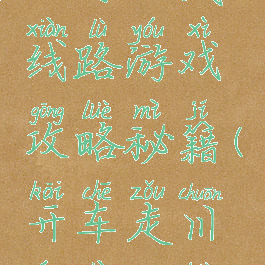 xiàn lù yóu xì
线路游戏
gōng lüè mì jí
攻略秘籍(
kāi chē zǒu chuān
开车走川